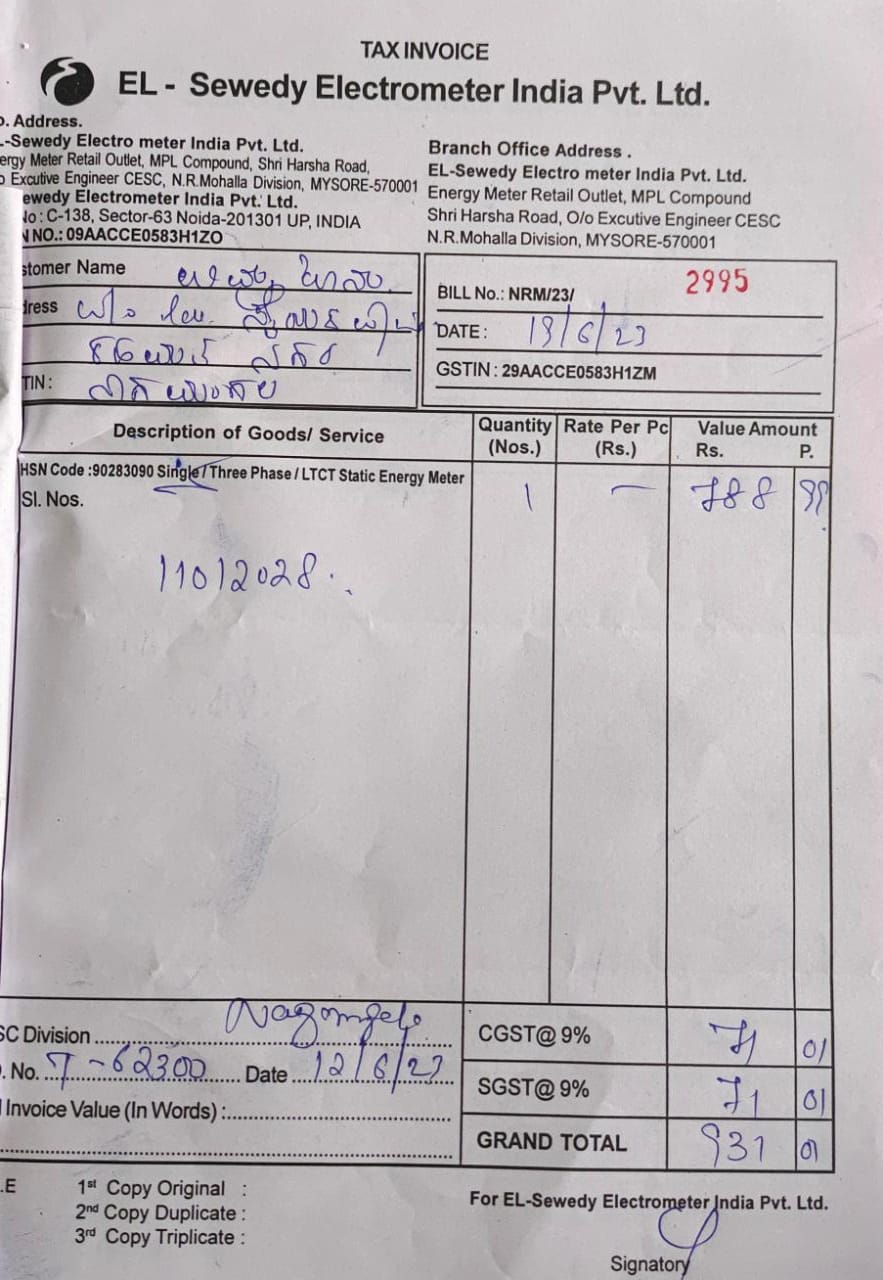 TAX INVOICE
EL - Sewedy Electrometer India Pvt. Ltd.
o. Address.
L-Sewedy Electro meter India Pvt. Ltd.
ergy Meter Retail Outlet, MPL Compound, Shri Harsha Road,
o Excutive Engineer CESC, N.R.Mohalla Division, MYSORE-570001
ewedy Electrometer India Pvt. Ltd.
No : C-138, Sector-63 Noida-201301 UP, INDIA
N NO.: 09AACCE0583H1ZO
Branch Office Address .
EL-Sewedy Electro meter India Pvt. Ltd.
Energy Meter Retail Outlet, MPL Compound
Shri Harsha Road, O/o Excutive Engineer CESC
N.R.Mohalla Division, MYSORE-570001
stomer Name
dress
TIN :
BILL No.: NRM/23/ 2995
DATE : 19/6/23
GSTIN : 29AACCE0583H1ZM
Description of Goods/ Service
Quantity (Nos.)
Rate Per Pc (Rs.)
Value Amount
Rs. P.
HSN Code :90283090 Single / Three Phase / LTCT Static Energy Meter 1 — 788 99
Sl. Nos.
11012028.
SC Division
. No. T-62300 Date 12/6/23
Invoice Value (In Words) :
CGST@ 9% 71 01
SGST@ 9% 71 01
GRAND TOTAL 931 01
.E
1st Copy Original :
2nd Copy Duplicate :
3rd Copy Triplicate :
For EL-Sewedy Electrometer India Pvt. Ltd.
Signatory